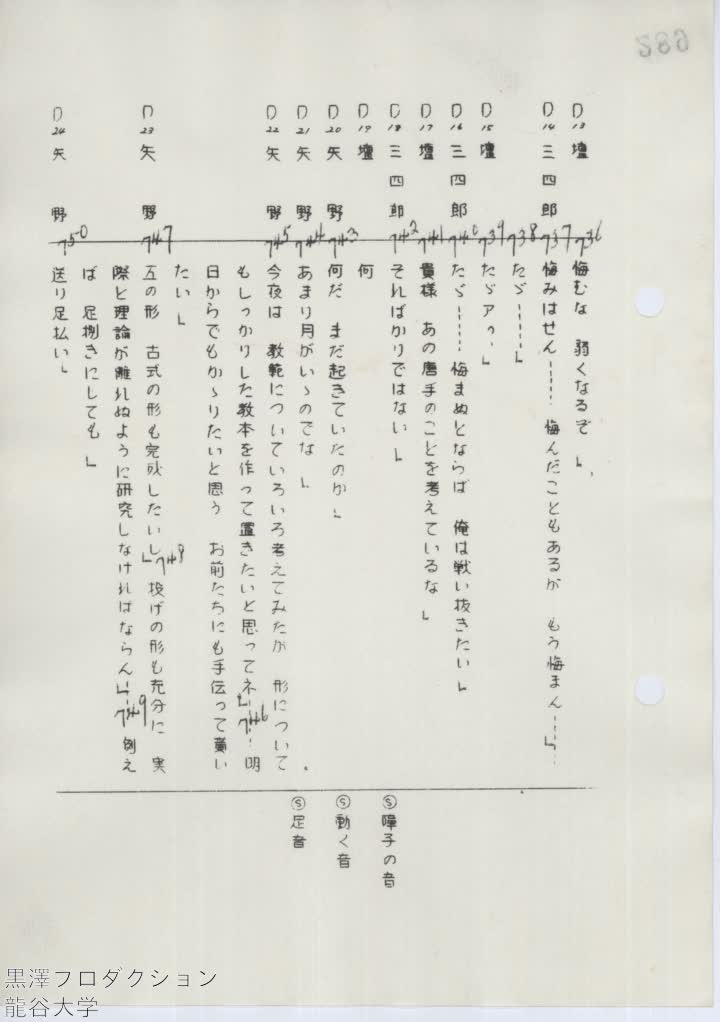 D13 壇 736 悔むな 弱くなるぞ」
D14 三四郎 737 悔みはせん…… 悔んだこともあるが もう悔まん……」
738 たゞ……」
D15 壇 739 たゞアゥ」
D16 三四郎 740 たゞ…… 悔まぬとならば 俺は戦い抜きたい」
D17 壇 741 貴様 あの唐手のことを考えているな 」
D18 三四郎 742 そればかりではない 」
D19 壇 何
D20 矢野 743 何だ まだ起きていたのか」
D21 矢野 744 あまり月がいゝのでな 」
D22 矢野 745 今夜は 教範についていろいろ考えてみたが 形について
もしっかりした教本を作って置きたいと思ってネ」746…… 明
日からでもかゝりたいと思う お前たちにも手伝って貰い
たい」
D23 矢野 747 五の形 古式の形も完成したいし」748 投げの形も充分に 実
際と理論が離れぬように研究しなければならん」…749 例え
ば 足捌きにしても 」
D24 矢野 750 送り足払い」
Ⓢ障子の音
Ⓢ動く音
Ⓢ足音
黒澤プロダクション
龍谷大学